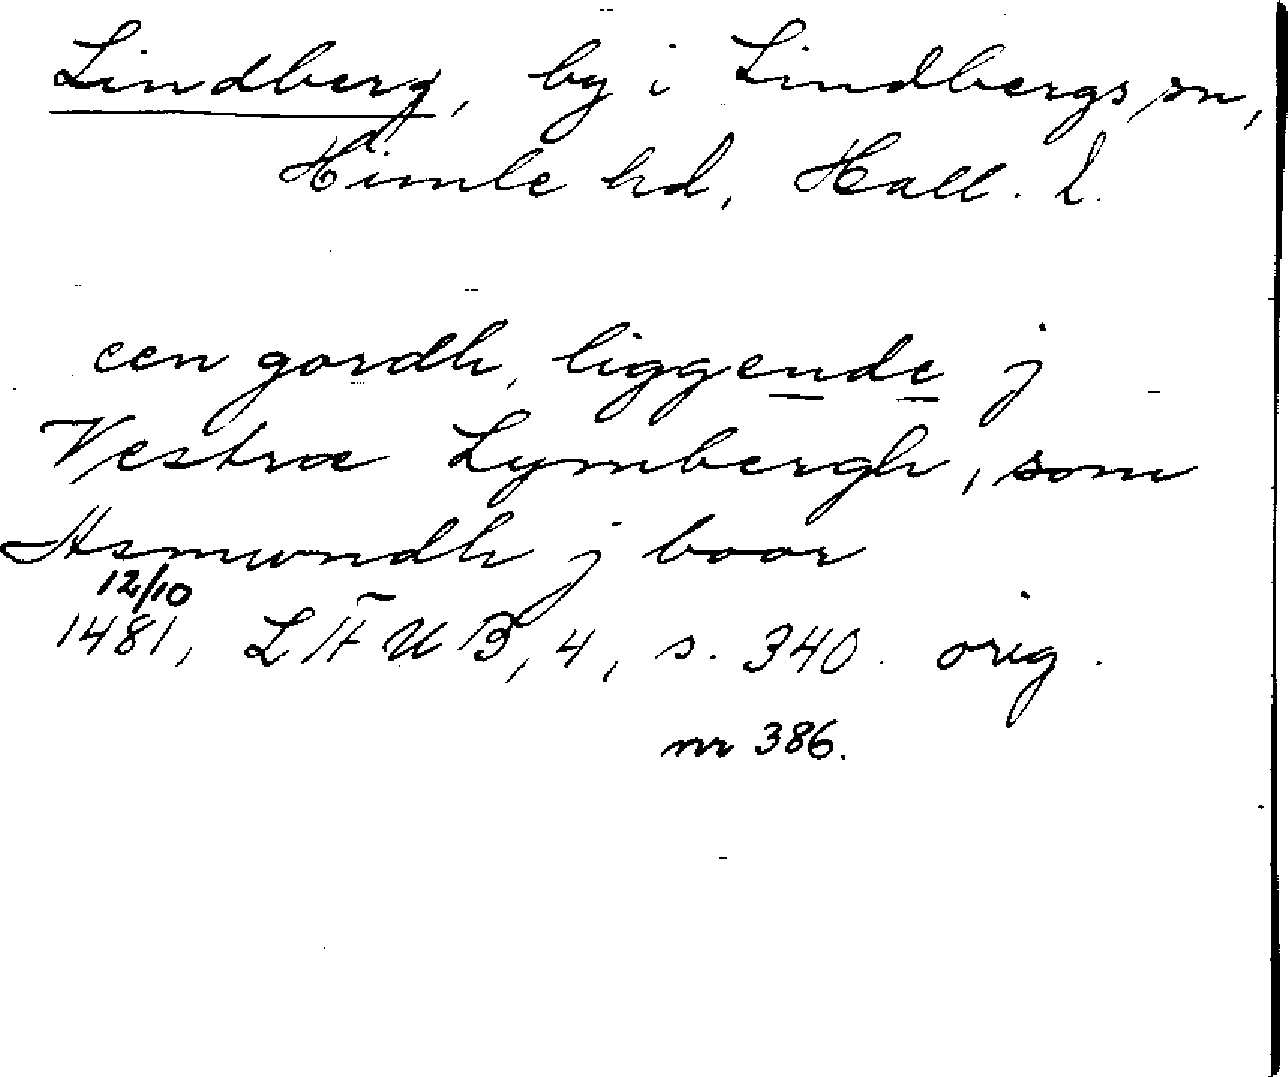 Lindberg, by i Lindbergs sn,
Himle hd, Hall. l.
een gordh, liggende j
Vestræ Lymbergh, som
Asmundh j boor
12/10
1481, LÄUB, 4, s. 340. orig.
nr 386.